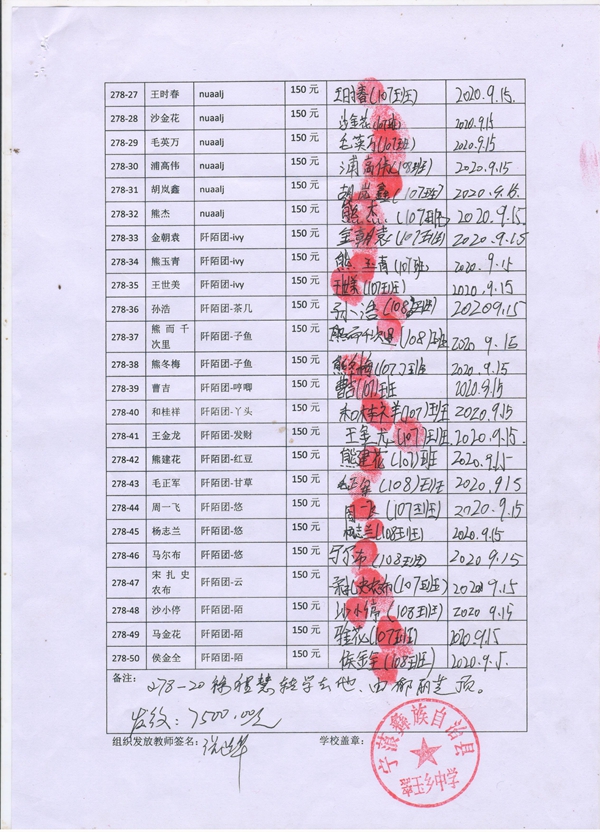 278-27 王时春 nuaalj 150 元 王时春(107班) 2020.9.15.
278-28 沙金花 nuaalj 150 元 沙金花(107班) 2020.9.15
278-29 毛英万 nuaalj 150 元 毛英万(107班) 2020.9.15
278-30 浦高伟 nuaalj 150 元 浦高伟(108班) 2020.9.15
278-31 胡岚鑫 nuaalj 150 元 胡岚鑫(107班) 2020.9.15
278-32 熊杰 nuaalj 150 元 熊杰(107班) 2020.9.15
278-33 金朝袁 阡陌团-ivy 150 元 金朝袁(107班) 2020.9.15
278-34 熊玉青 阡陌团-ivy 150 元 熊玉青(107班) 2020.9.15
278-35 王世美 阡陌团-ivy 150 元 王世美(107班) 2020.9.15
278-36 孙浩 阡陌团-茶几 150 元 孙浩(108班) 2020.9.15
278-37 熊而千次里 阡陌团-子鱼 150 元 (108)班 2020.9.15
278-38 熊冬梅 阡陌团-子鱼 150 元 熊冬梅(107)班 2020.9.15
278-39 曹吉 阡陌团-哼唧 150 元 曹吉(107)班 2020.9.15
278-40 和桂祥 阡陌团-丫头 150 元 和桂祥(107)班 2020.9.15
278-41 王金龙 阡陌团-发财 150 元 王金龙(107)班 2020.9.15.
278-42 熊建花 阡陌团-红豆 150 元 熊建花(107)班 2020.9.15
278-43 毛正军 阡陌团-甘草 150 元 毛正军(108)班 2020.9.15
278-44 周一飞 阡陌团-悠 150 元 周一飞(107班) 2020.9.15
278-45 杨志兰 阡陌团-悠 150 元 杨志兰(108班) 2020.9.15
278-46 马尔布 阡陌团-悠 150 元 马尔布(108班) 2020.9.15
278-47 宋扎史农布 阡陌团-云 150 元 (107班) 2020.9.15
278-48 沙小停 阡陌团-陌 150 元 沙小停(108班) 2020.9.15
278-49 马金花 阡陌团-陌 150 元 (107班) 2020.9.15
278-50 侯金全 阡陌团-陌 150 元 侯金全(108班) 2020.9.15
备注: 278-20 转学去他 由郁丽芝领。
发放:7500.00元
组织发放教师签名: 学校盖章:
宁蒗彝族自治县
翠玉乡中学